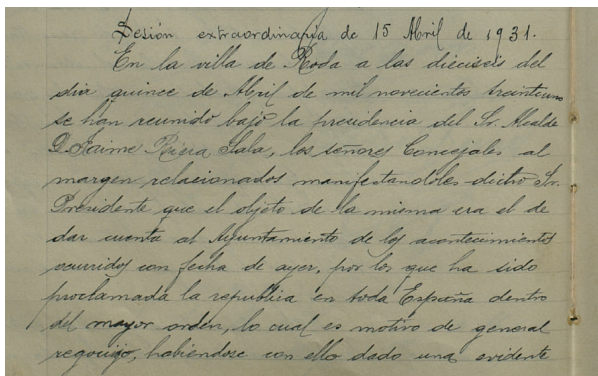 Sesión extraordinaria de 15 Abril de 1931.
En la villa de Roda a las dieciseis del
dia quince de Abril de mil novecientos treintiuno
se han reunido bajo la presidencia del Sr. Alcalde
D. Jaime Riera Sala, los señores Concejales al
margen relacionados manifestandoles dicho Sr.
Presidente que el objeto de la misma era el de
dar cuenta al Ayuntamiento de los acontecimientos
ocurridos con fecha de ayer, por los que ha sido
proclamada la republica en toda España dentro
del mayor orden, lo cual es motivo de general
regocijo, habiendose con ello dado una evidente